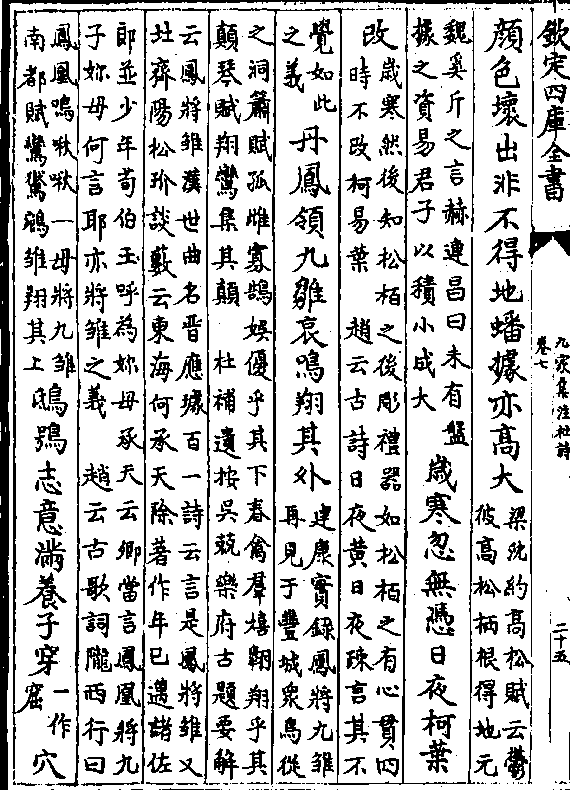 欽定四庫全書
九家集注杜詩
卷七
二十五
顔色壞出非不得地蟠據亦髙大
梁沈約髙松賦云鬱
彼髙松栖根得地元
魏奚斤之言赫連昌曰未有盤
據之資易君子以積小成大
歲寒忽無憑日夜柯葉
改
歲寒然後知松栢之後彫禮器如松栢之有心貫四
時不改柯易葉 趙云古詩日夜黄日夜疎言其不
覺如此
之義
丹鳳領九雛哀鳴翔其外
建康實録鳳將九雛
再見于豐城衆鳥從
之洞簫賦孤雌寡鶴娯優乎其下春禽羣嬉翺翔乎其
顛琴賦翔鸞集其顛 杜補遺按吳兢樂府古題要解
云鳳將雛漢世曲名晋應璩百一詩云言是鳳將雛又
北齊陽松玠談藪云東海何承天除著作年已邁諸佐
郎並少年荀伯玉呼為妳母承天云卿當言鳳凰將九
子妳母何言耶亦將雛之義 趙云古歌詞隴西行曰
鳳凰鳴啾啾一母將九雛
南都賦鸑鷟鵷雛翔其上
鴟鴞志意滿養子穿
一作
窟
穴